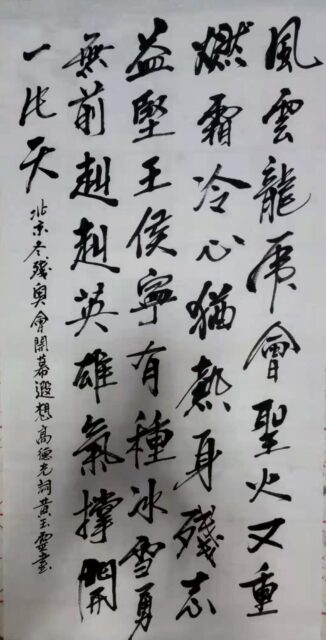 風雲龍虎會聖火又重
燃霜冷心猶熱身殘志
益堅王侯寧有種冰雪勇
無前赳赳英雄氣撐開
一片天
北京冬殘奧會開幕遐想高德光詞黃玉書